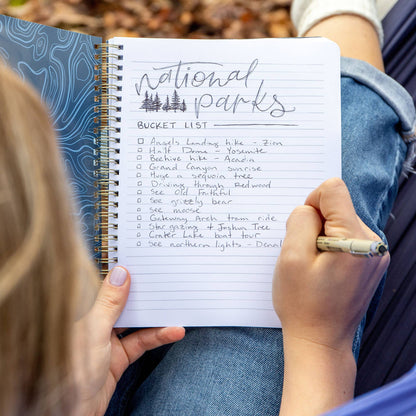 national
parks
BUCKET LIST
Angels Landing hike - Zion
Half Dome - Yosemite
Beehive hike - Acadia
Grand Canyon sunrise
Hug a sequoia tree
Driving through Redwood
See Old Faithful
See grizzly bear
See moose
Gateway Arch tram ride
Stargazing @ Joshua Tree
Crater Lake boat tour
See northern lights - Denal